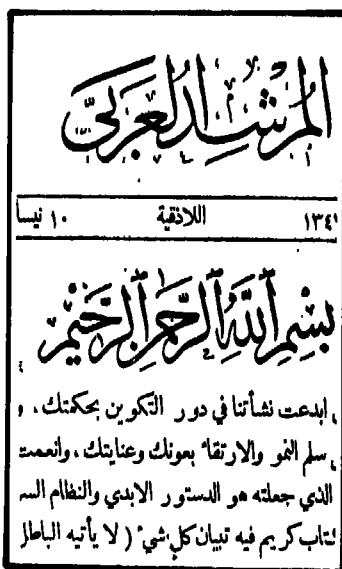 المرشد العربي
١٣٤١ اللاذقية ١٠ نيسا
بسم الله الرحمن الرحيم
ابدعت نشأتنا في دور التكوين بحكمتك ، و
سلم النمو والارتقاء بعونك وعنايتك ، وانعمت
الذي جعلته هو الدستور الابدي والنظام الس
كتاب كريم فيه تبيان كل شيء ( لا يأتيه الباطل